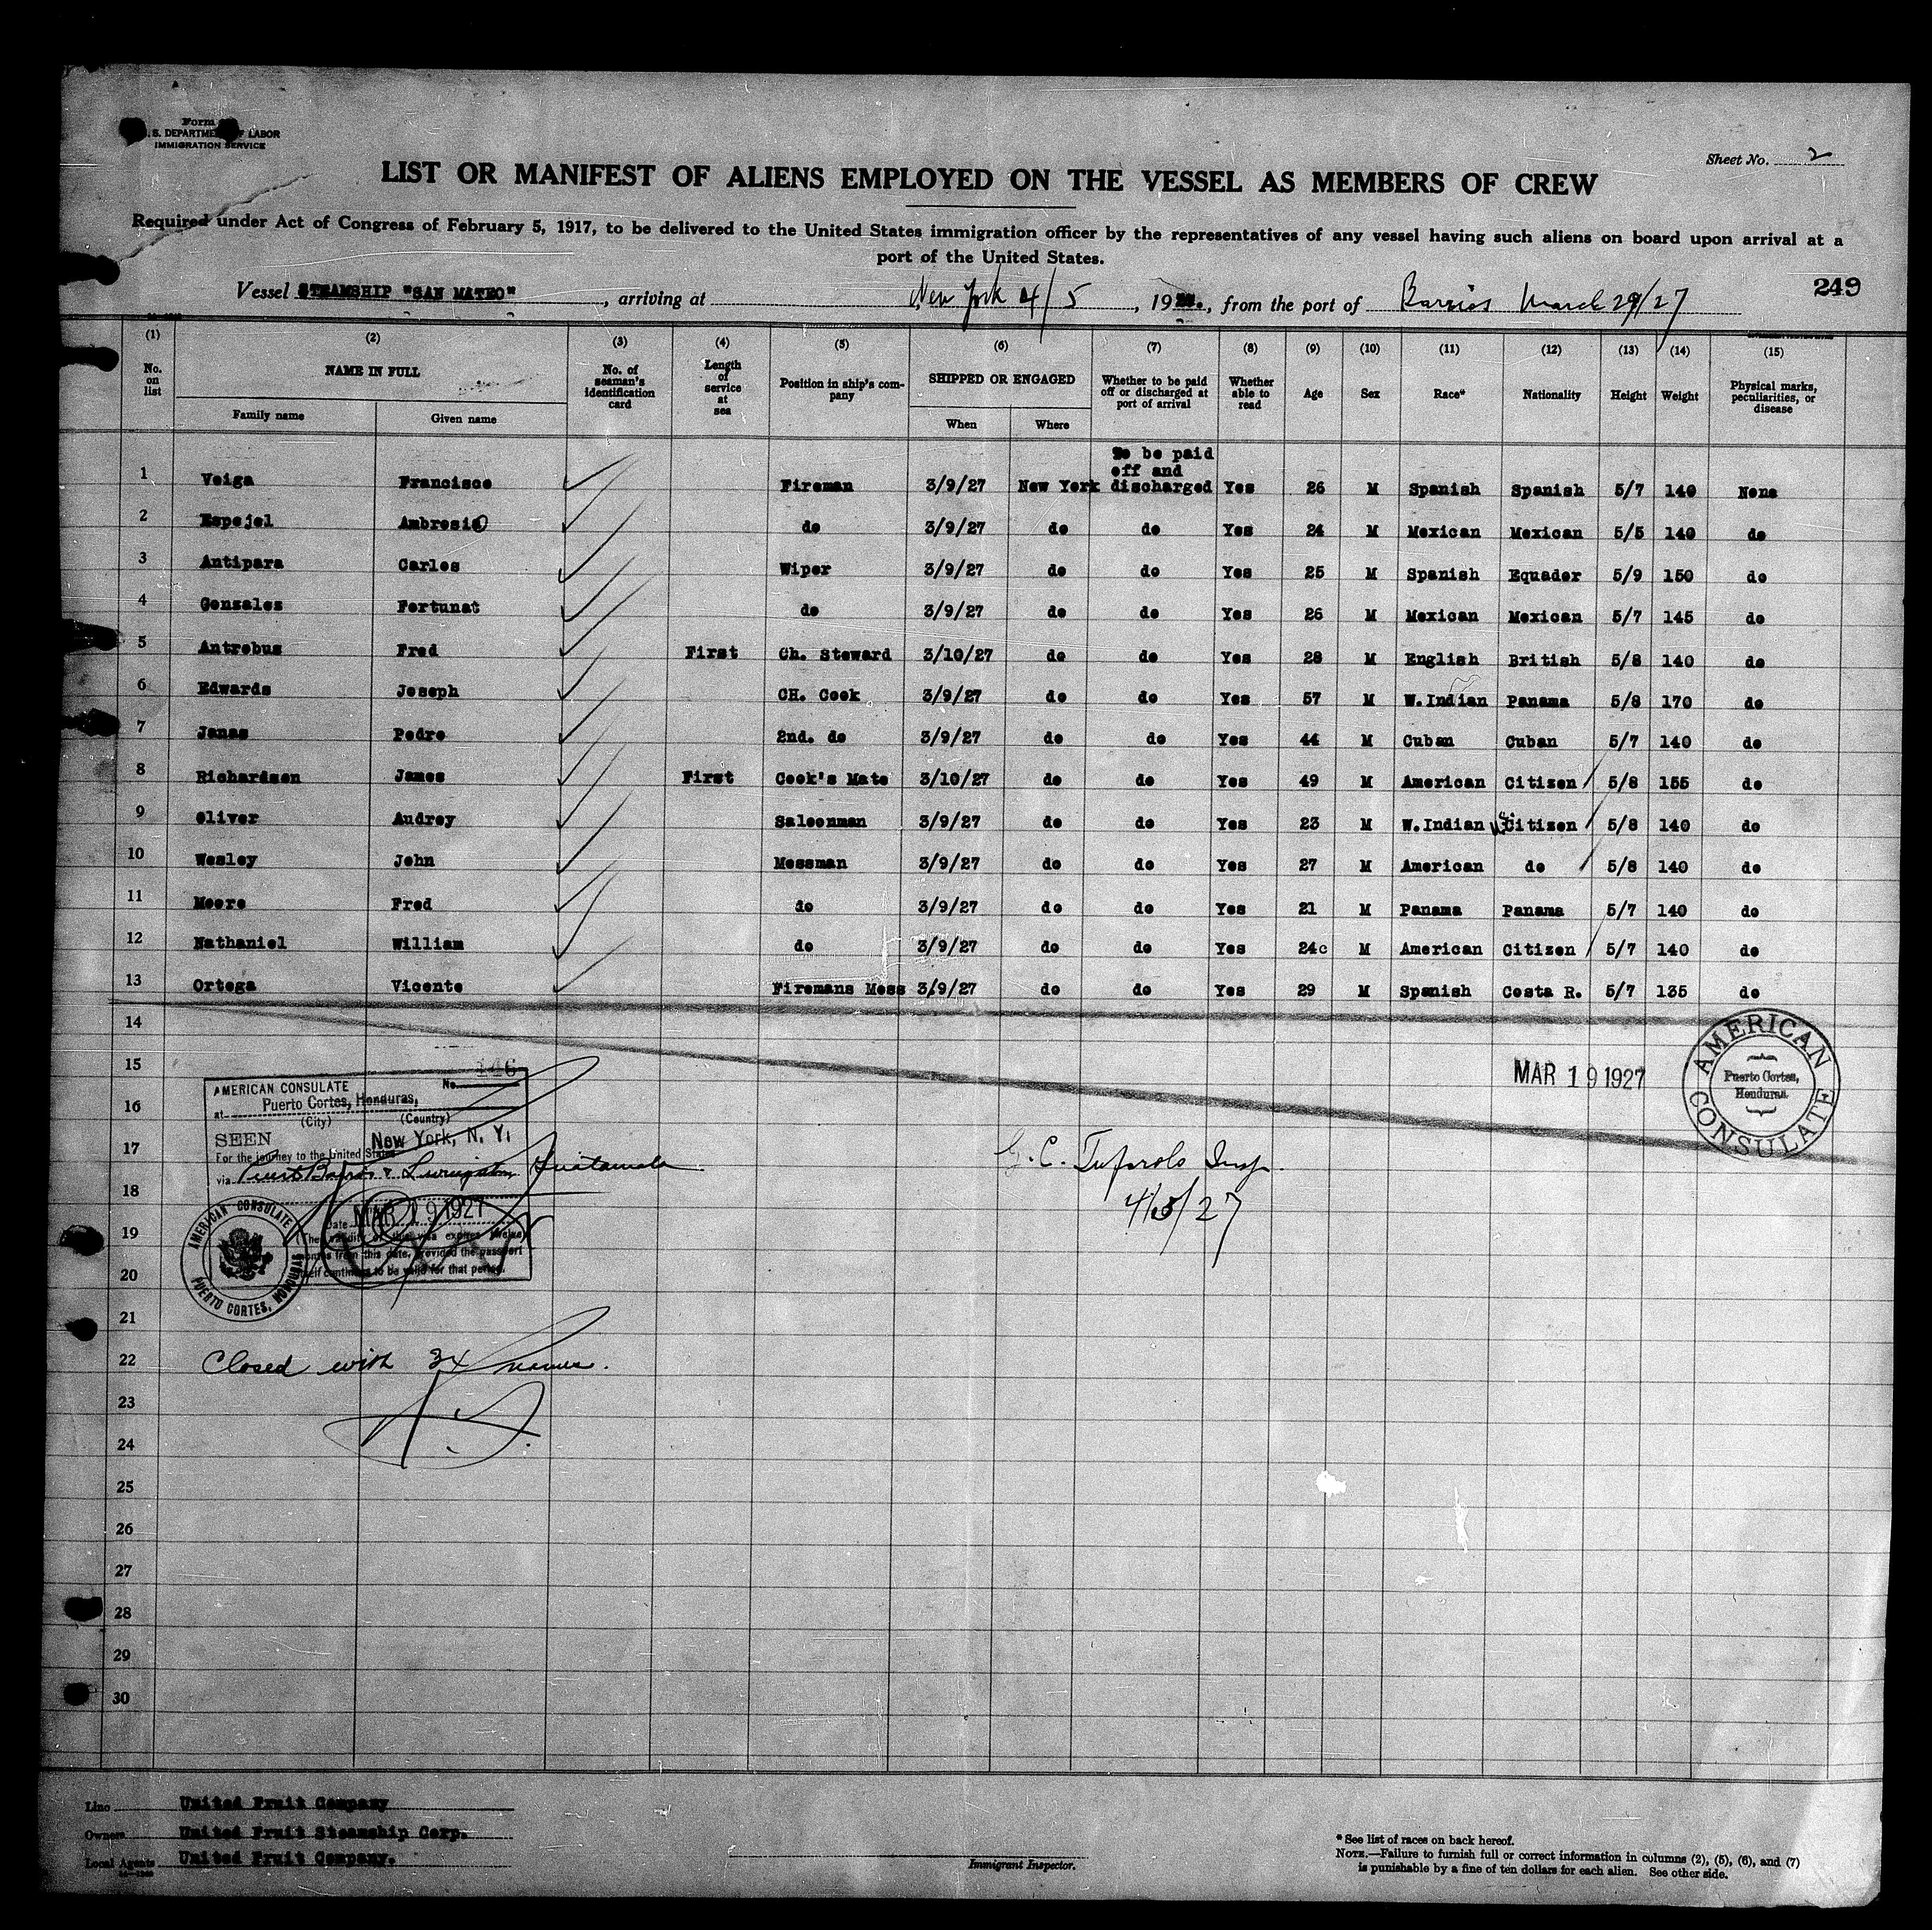 Form
U. S. DEPARTMENT OF LABOR
IMMIGRATION SERVICE
Sheet No. 2
LIST OR MANIFEST OF ALIENS EMPLOYED ON THE VESSEL AS MEMBERS OF CREW
Required under Act of Congress of February 5, 1917, to be delivered to the United States immigration officer by the representatives of any vessel having such aliens on board upon arrival at a
port of the United States.
249
Vessel STEAMSHIP "SAN MATEO", arriving at New York 4/5, 19, from the port of Barrios March 29/27
(1) (2) (3) (4) (5) (6) (7) (8) (9) (10) (11) (12) (13) (14) (15)
No. on list NAME IN FULL No. of seaman's identification card Length of service at sea Position in ship's company SHIPPED OR ENGAGED Whether to be paid off or discharged at port of arrival Whether able to read Age Sex Race* Nationality Height Weight Physical marks, peculiarities, or disease
Family name Given name When Where
To be paid
off and
1 Veiga Francisco Fireman 3/9/27 New York discharged Yes 26 M Spanish Spanish 5/7 140 None
2 Espejel Ambrosio do 3/9/27 do do Yes 24 M Mexican Mexican 5/5 140 do
3 Antipara Carlos Wiper 3/9/27 do do Yes 25 M Spanish Equador 5/9 150 do
4 Gonzales Fortunat do 3/9/27 do do Yes 26 M Mexican Mexican 5/7 145 do
5 Antrobus Fred First Ch. Steward 3/10/27 do do Yes 28 M English British 5/8 140 do
6 Edwards Joseph CH. Cook 3/9/27 do do Yes 57 M W.Indian Panama 5/8 170 do
7 Janas Pedro 2nd. do 3/9/27 do do Yes 44 M Cuban Cuban 5/7 140 do
8 Richardson James First Cook's Mate 3/10/27 do do Yes 49 M American Citizen 5/8 155 do
9 Oliver Audrey Saloonman 3/9/27 do do Yes 23 M W.Indian U.S. Citizen 5/8 140 do
10 Wesley John Messman 3/9/27 do do Yes 27 M American do 5/8 140 do
11 Moore Fred do 3/9/27 do do Yes 21 M Panama Panama 5/7 140 do
12 Nathaniel William do 3/9/27 do do Yes 24c M American Citizen 5/7 140 do
13 Ortega Vicente Firemans Mess 3/9/27 do do Yes 29 M Spanish Costa R. 5/7 135 do
14
15
16
17
18
19
20
21
22
23
24
25
26
27
28
29
30
AMERICAN CONSULATE No. 146
at Puerto Cortes, Honduras,
(City) (Country)
SEEN New York, N. Y.
For the journey to the United States
via Puerto Barrios & Livingston Guatamala
Date MAR 19 1927
(The validity of this visa expires twelve
months from this date, provided the passport
itself continues to be valid for that period.
AMERICAN CONSULATE
PUERTO CORTES, HONDURAS
MAR 19 1927
AMERICAN CONSULATE
Puerto Cortes,
Honduras
Insp.
4/5/27
Closed with 34 names.
Line United Fruit Company
Owners United Fruit Steamship Corp.
Local Agents United Fruit Company.
Immigrant Inspector.
*See list of races on back hereof.
NOTE.—Failure to furnish full or correct information in columns (2), (5), (6), and (7)
is punishable by a fine of ten dollars for each alien. See other side.